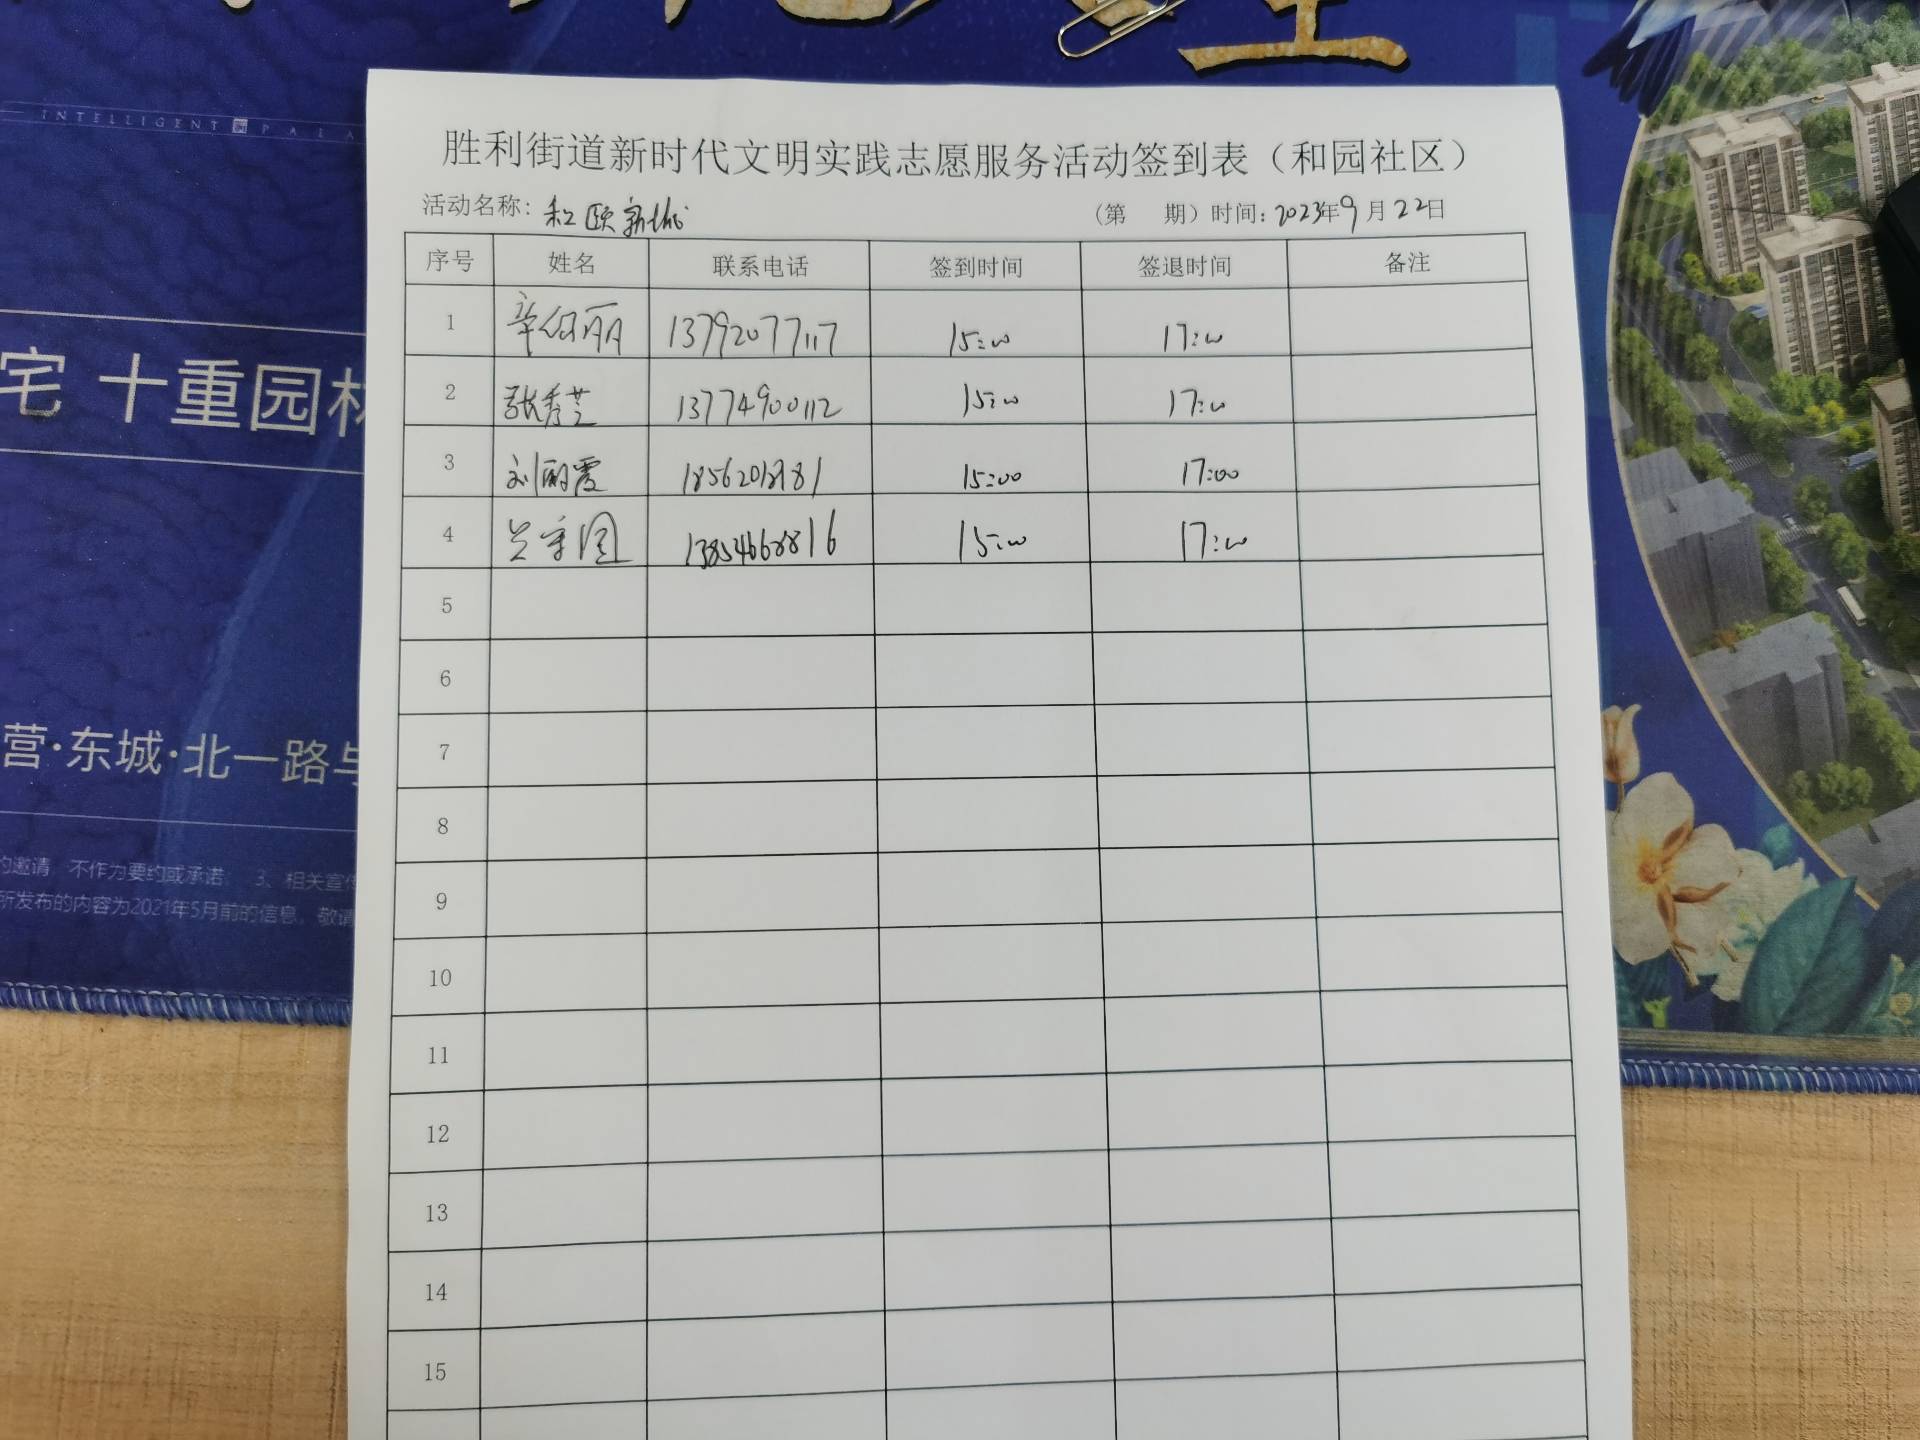 INTELLIGENT PALA
胜利街道新时代文明实践志愿服务活动签到表（和园社区）
活动名称：和颐新城
（第 期）时间：2023年9月22日
序号 姓名 联系电话 签到时间 签退时间 备注
1 13792077117 15:00 17:00
2 张秀芝 13774900112 15:00 17:00
3 刘丽霞 15:00 17:00
4 13854668816 15:00 17:00
5
6
7
8
9
10
11
12
13
14
15
宅 十重园林
营·东城·北一路与
的邀请，不作为要约或承诺； 3、相关宣传
所发布的内容为2021年5月前的信息。敬请